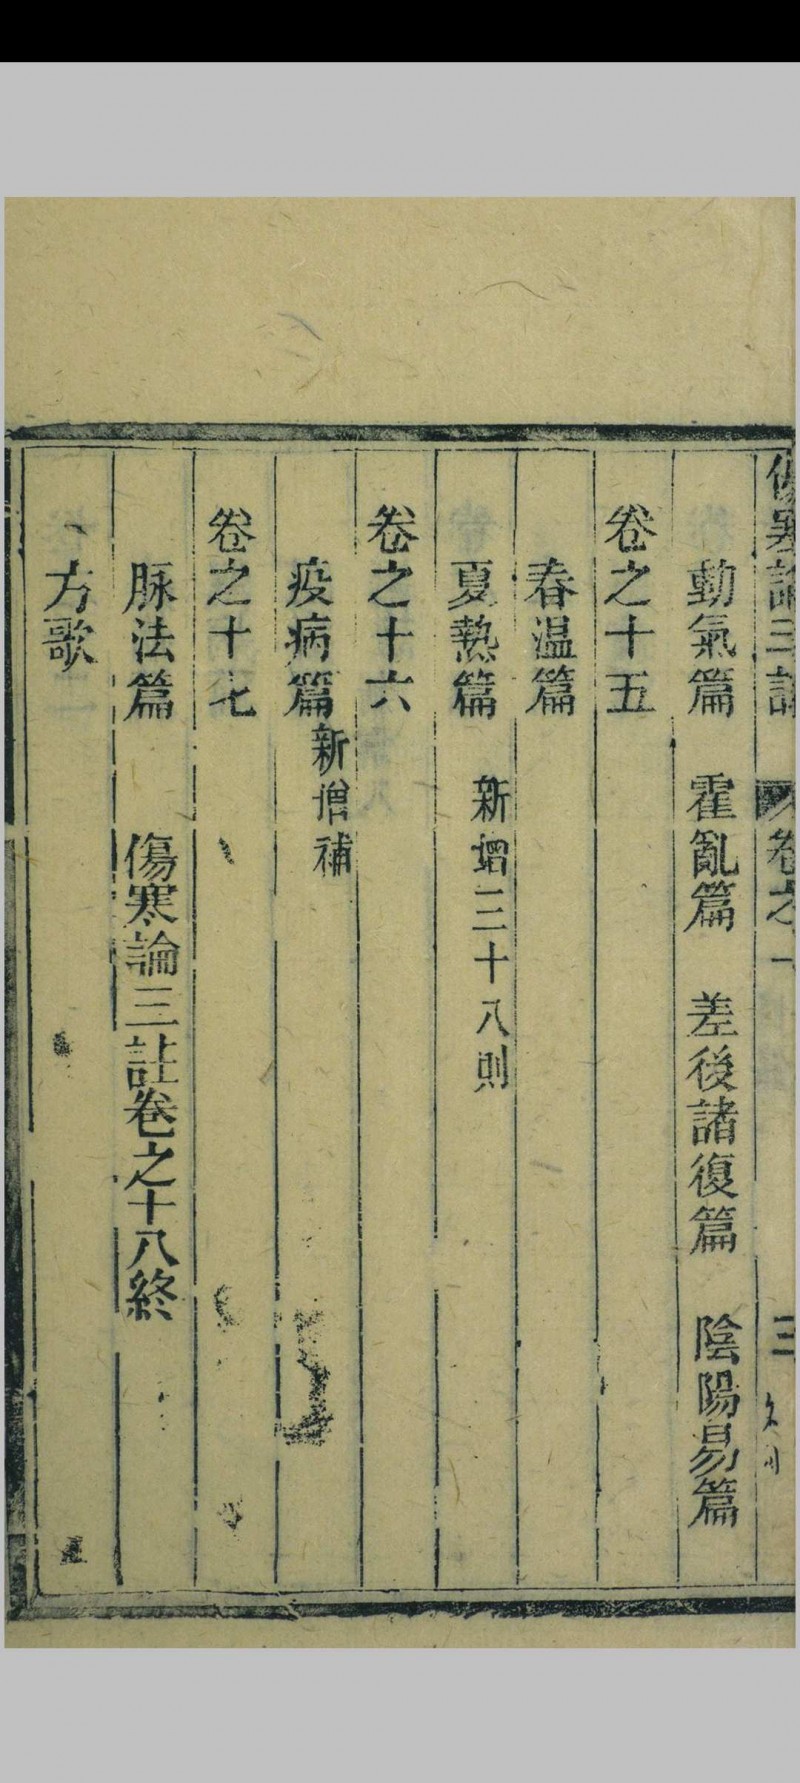 傷寒論三註 卷之一 三
動氣篇 霍亂篇 差後諸復篇 陰陽易篇
卷之十五
春温篇
夏熱篇 新增三十八則
卷之十六
疫病篇 新增補
卷之十七
脉法篇 傷寒論三註卷之十八終
方歌